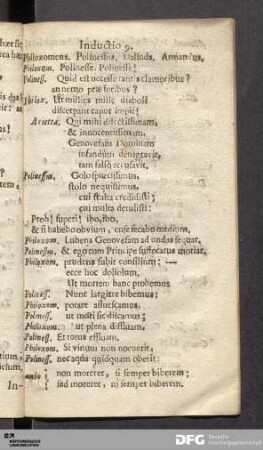 Inductio 9.
Philoxomenes. Polinessus. Dalinda, Armandus,
Philoxom. Polinesse. Polinesse!
Poliness. Quid est necesse tantis clamoribus?
an nemo præ foribus?
Philox. Ut milies mille diaboli
discerpant caput impii!
Arietta. Qui mihi dilectissimam,
& innocentissimam,
Genovefam Dominam
infandùm denigravit,
tam falsò accusavit.
Polinessus. Golo spucissimus,
stolo nequissimus,
cui stulta credidisti;
cui multa detulisti:
Proh! superi! ibo, ibo,
& si habebo obvium, ense secabo medium,
Philoxom. Lubens Genovefam ad undas sequar,
Polinessus. & ego cum Principe suffocatus moriar,
Philoxom. prudens subit consilium;
ecce hoc doliolum,
Ut mortem hanc probemus
Poliness. Nunc largiter bibemus;
Philoxom. potare assuescamus,
Poliness. ut mori sic discamus;
Philoxom. ut plena diffluam,
Poliness. Et totus effluam,
Philoxom. Si vinum non nocuerit,
Poliness. nec aqua quidquam oberit:
ambo non morerer, si semper biberem;
sed morerer, ni semper biberem,
In-
DFG